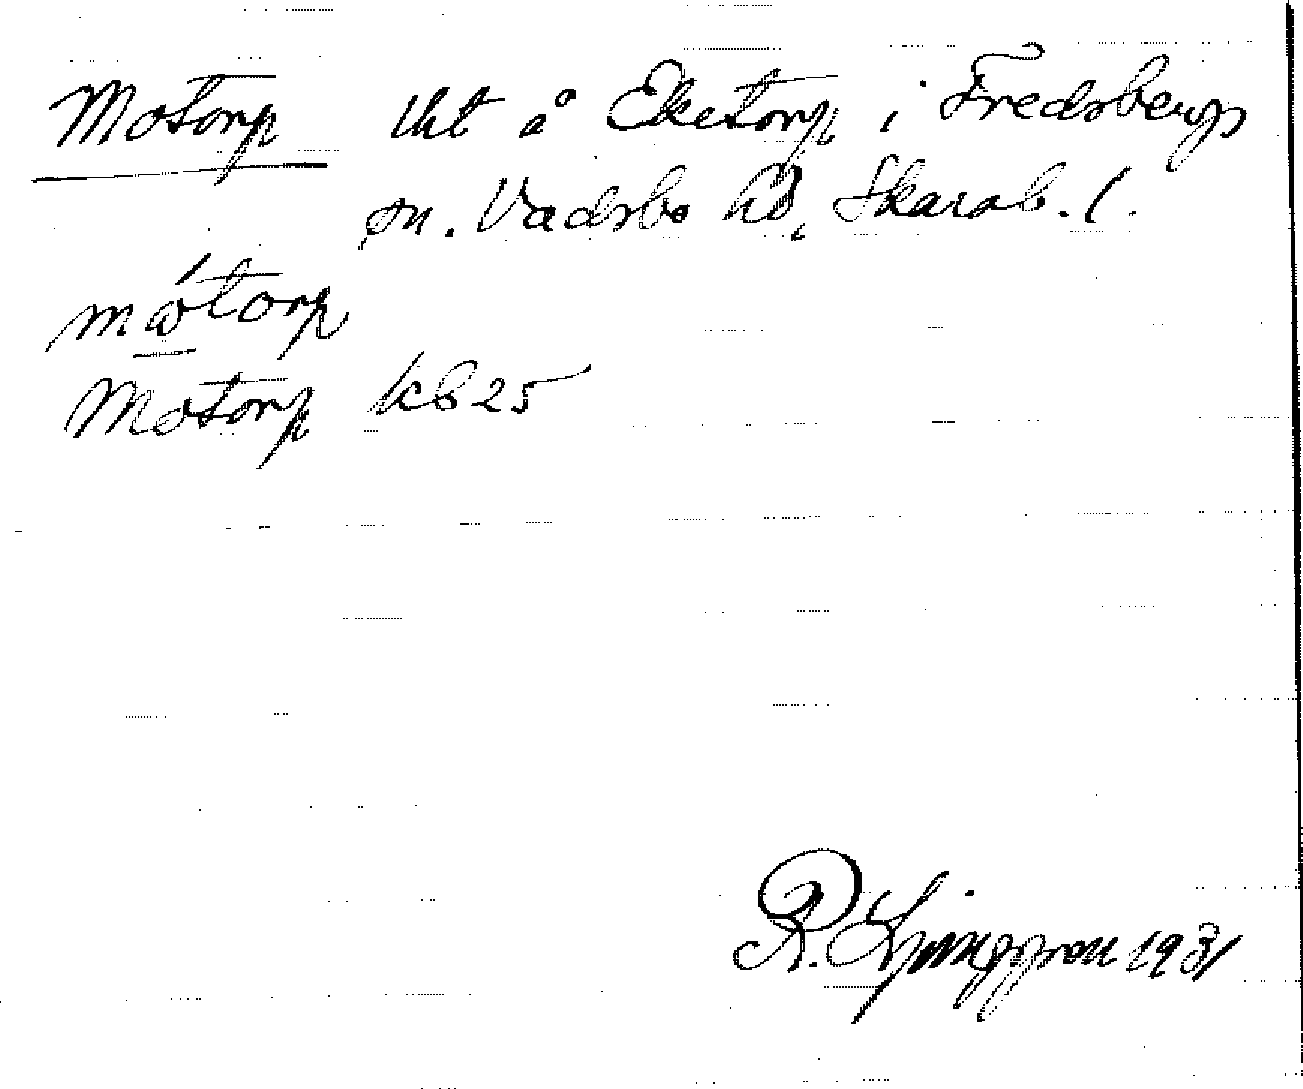 Motorp lht å Eketorp i Fredsbergs
sn. Vadsbo hd, Skarab. l.
mωtorp
Motorp kb 25
R. Ljunggren 1931